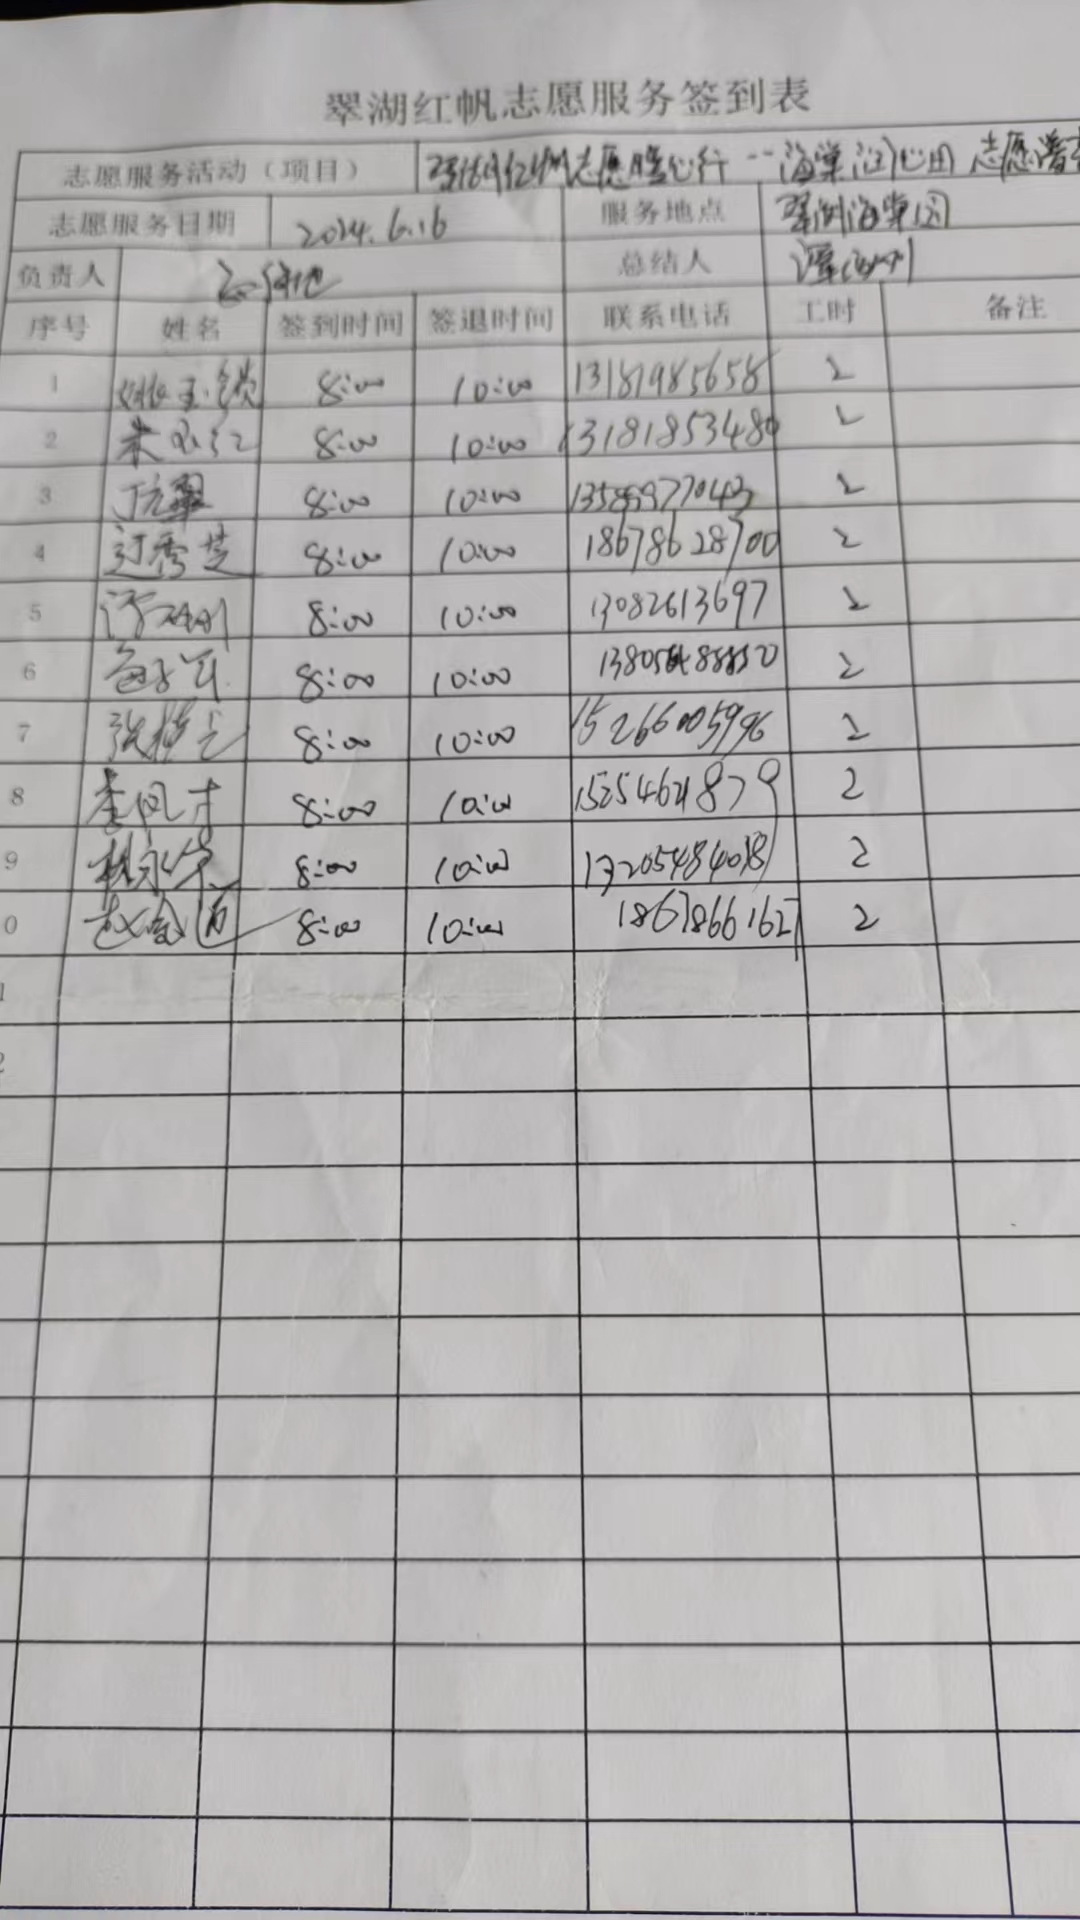 翠湖红帆志愿服务签到表
志愿服务活动（项目） 翠湖红帆志愿暖心行--海棠润心田 志愿者
志愿服务日期 2024.6.16 服务地点 翠湖海棠园
负责人 总结人
序号 姓名 签到时间 签退时间 联系电话 工时 备注
1 8:00 10:00 13181985658 2
2 朱 红 8:00 10:00 13181853480 2
3 8:00 10:00 2
4 过秀芝 8:00 10:00 18678628700 2
5 8:00 10:00 13082613697 2
6 8:00 10:00 2
7 张 8:00 10:00 15266005996 2
8 李凤才 8:00 10:00 15254621879 2
9 林永华 8:00 10:00 2
0 赵金道 8:00 10:00 18678661627 2
1
2